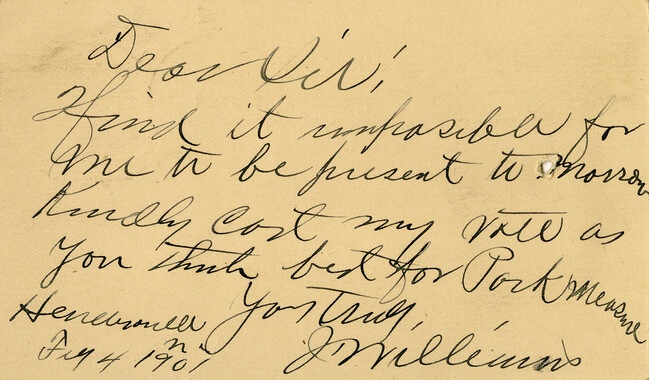 Dear Sir!
I find it impossible for
me to be present to morrow
Kindly cast my vote as
you think best for Park Measure
Yos Truly,
Feby 4 1901
J Williams